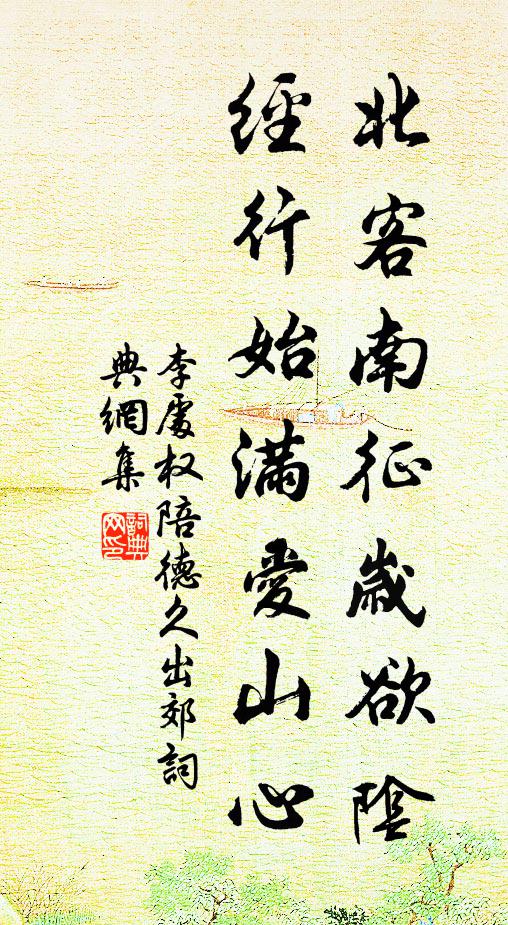 北客南征歲欲陰
經行始滿愛山心
李處权陪德久出郊詞
典網集
詞典
网印